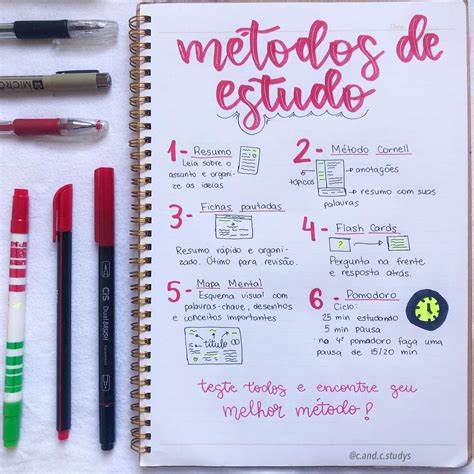 métodos de
estudo
1- Resumo
Leia sobre o
assunto e organi-
ze as ideias
2- Método Cornell
anotações
tópicos
resumo com suas
palavras
3- Fichas pautadas
Resumo rápido e organi-
zado. Ótimo para revisão.
4- Flash Cards
?
Pergunta na frente
e resposta atrás.
5- Mapa Mental
Esquema visual com
palavras-chave, desenhos
e conceitos importantes
título
6- Pomodoro
Ciclo:
25 min estudando
5 min pausa
na 4º pomodoro faça uma
pausa de 15/20 min
teste todos e encontre seu
melhor método!
@c.and.c.studys
CiS
Dual BRUSH